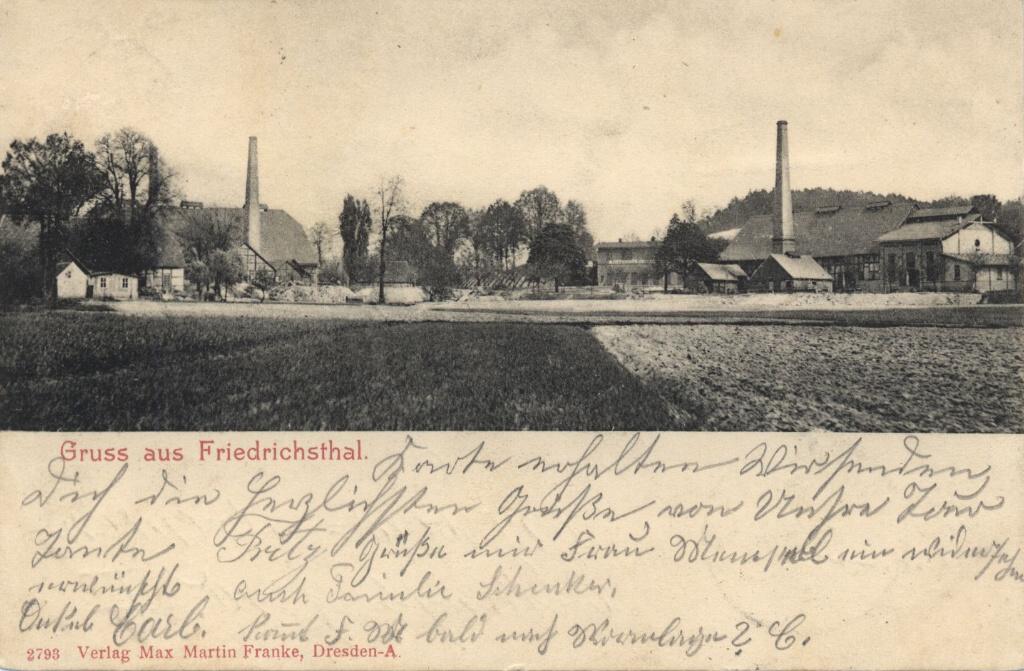 Gruss aus Friedrichsthal.
Karte erhalten Wir senden
Dich die Herzlichsten Grüße von Unsre Tour
Tante Fritz Grüße mir Frau ein
erwünscht auch Familie Schenker.
Carl. Kommt F. M bald nach ? C.
2793 Verlag Max Martin Franke, Dresden-A.